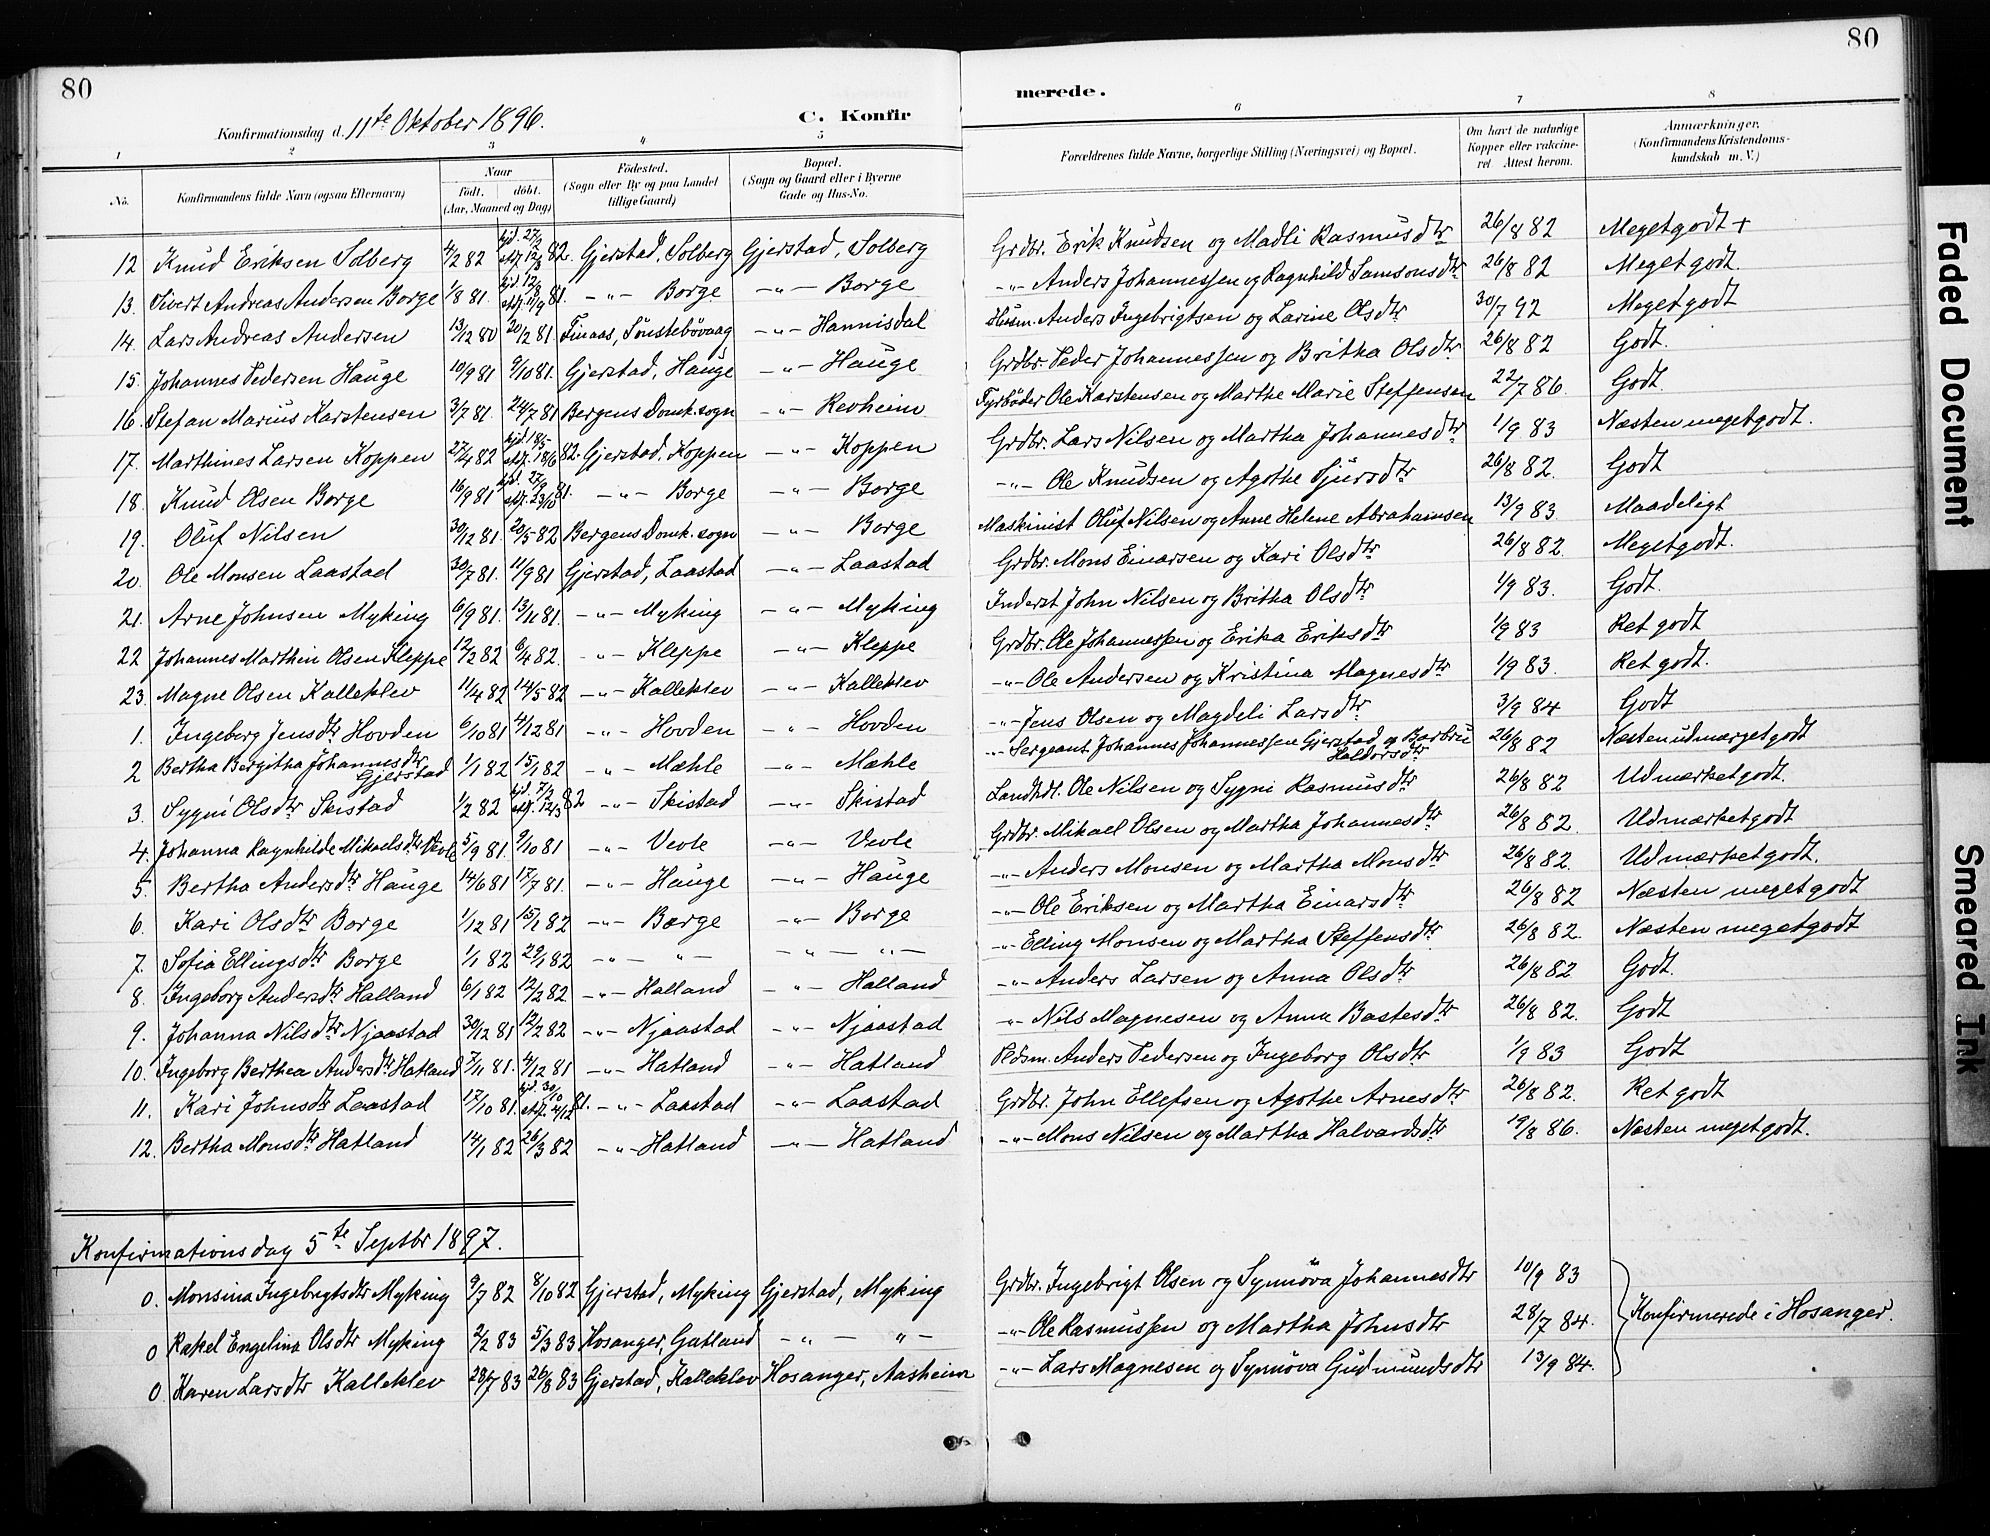 80
80
Konfirmationsdag d. 11te Oktober 1896.
C. Konfir
merede.
1 2 3 4 5 6 7 8
No.
Konfirmandens fulde Navn (ogsaa Efternavn)
Naar
født. døbt.
(Aar, Maaned og Dag)
Fødested.
(Sogn eller By og paa Landet
tillige Gaard)
Bopæl.
(Sogn og Gaard eller i Byerne
Gade og Hus-No.
Forældrenes fulde Navne, borgerlige Stilling (Næringsvei) og Bopæl.
Om havt de naturlige
Kopper eller vakcine-
ret. Attest herom.
Anmærkninger,
(Konfirmandens Kristendoms-
kundskab m. V.)
12 Knud Eriksen Solberg 4/2 82 hjd. 27/2 stdf. 12/3 82. Gjerstad, Solberg Gjerstad, Solberg Grdbr. Erik Knudsen og Madli Rasmusdtr 26/8 82 Megetgodt +
13. Sivert Andreas Andersen Borge 1/8 81. hjd. 12/8 stdf. 11/9 81. -„- Borge -„- Borge -„- Anders Johannessen og Ragnhild Samsonsdtr 26/8 82 Megetgodt.
14. Lars Andreas Andersen 13/12 80 20/12 81. Finaas, Sønstebøvaag -„- Hannisdal Husm. Anders Ingebrigtsen og Larine Olsdtr 30/7 92 Megetgodt
15. Johannes Pedersen Hauge 10/9 81 9/10 81. Gjerstad, Hauge -„- Hauge Grdbr. Peder Johannessen og Britha Olsdtr 26/8 82 Godt.
16. Stefan Marius Karstensen 3/7 81. 24/7 81 Bergens Domk. sogn -„- Revheim Fyrbøder Ole Karstensen og Marthe Marie Steffensen 22/7 86. Godt.
17. Marthines Larsen Koppen 27/4 82 hjd. 18/5 stdf. 18/6 82. Gjerstad, Koppen -„- Koppen Grdbr. Lars Nilsen og Martha Johannesdtr 1/9 83 Næsten megetgodt.
18. Knud Olsen Borge 16/9 81 hjd. 27/9 stdf. 23/10 81. -„- Borge -„- Borge -„- Ole Knudsen og Agothe Sjursdtr 26/8 82. Godt
19. Oluf Nilsen 30/12 81. 20/5 82 Bergens Domk. sogn -„- Borge Maskinist Oluf Nilsen og Anne Helene Abrahamsen 13/9 83. Maadeligt
20. Ole Monsen Laastad 30/7 81. 11/9 81 Gjerstad, Laastad -„- Laastad Grdbr. Mons Einarsen og Kari Olsdtr 26/8 82. Megetgodt.
21. Arne Johnsen Myking 6/9 81. 13/11 81. -„- Myking -„- Myking Inderst John Nilsen og Britha Olsdtr 1/9 83. Godt.
22 Johannes Marthin Olsen Kleppe 12/2 82 6/4 82. -„- Kleppe -„- Kleppe Grdbr. Ole Johannessen og Erika Eriksdtr 1/9 83 Ret godt
23. Magne Olsen Kalleklev 11/4 82 14/5 82 -„- Kalleklev -„- Kalleklev -„- Ole Andersen og Kristina Magnesdtr 1/9 83. Ret godt.
1. Ingeberg Jensdtr Hovden 6/10 81 4/12 81 -„- Hovden -„- Hovden -„- Jens Olsen og Magdeli Larsdtr 3/9 84 Godt
2 Bertha Bergitha Johannesdtr Gjerstad 1/1 82 15/1 82 -„- Mæhle -„- Mæhle -„- Sergeant Johannes Johannessen Gjerstad og Barbru Haldorsdtr 26/8 82 Næsten udmærgetgodt
3. Sygni Olsdtr Skistad 1/2 82 hjd. 7/2 stdf. 12/3 82 -„- Skistad -„- Skistad Landhdl. Ole Nilsen og Sygni Rasmusdtr 26/8 82 Udmærketgodt.
4. Johanna Ragnhilde Mikaelsdtr Vevle 5/9 81. 9/10 81 -„- Vevle -„- Vevle Grdbr. Mikael Olsen og Martha Johannesdtr 26/8 82 Udmærketgodt
5. Bertha Andersdtr Hauge 14/6 81 17/7 81. -„- Hauge -„- Hauge -„- Anders Monsen og Martha Monsdtr 26/8 82. Udmærketgodt.
6. Kari Olsdtr Borge 1/12 81 15/1 82 -„- Borge -„- Borge -„- Ole Eriksen og Martha Einarsdtr 26/8 82 Næsten megetgodt
7. Sofia Ellingsdtr Borge 1/1 82 29/1 82 -„- „- -„- „- -„- Elling Monsen og Martha Steffensdtr 26/8 82. Næsten megetgodt
8. Ingeborg Andersdtr Halland 6/1 82 12/2 82 -„- Halland -„- Halland -„- Anders Larsen og Anna Olsdtr 26/8 82 Godt.
9. Johanna Nilsdtr Njaastad 30/12 81 12/2 82 -„- Njaastad -„- Njaastad -„- Nils Magnesen og Anna Bastesdtr 26/8 82. Godt
10. Ingeborg Berthea Andersdtr Hatland 7/11 81. 4/12 81 -„- Hatland -„- Hatland Pldsm. Anders Pedersen og Ingeborg Olsdtr 1/9 83 Godt
11. Kari Johnsdtr Laastad 17/10 81. hjd. 30/10 stdf. 4/12 81. -„- Laastad -„- Laastad Grdbr. John Ellefsen og Agothe Arnesdtr 26/8 82. Ret godt
12. Bertha Monsdtr Hatland 14/1 82 26/3 82 -„- Hatland -„- Hatland -„- Mons Nilsen og Martha Halvardsdtr 19/8 86. Næsten megetgodt.
Konfirmationsdag 5te Septbr 1897.
0. Monsina Ingebrigtsdtr Myking 9/7 82 8/10 82 Gjerstad, Myking Gjerstad, Myking Grdbr. Ingebrigt Olsen og Synnøva Johannesdtr 10/9 83
0 Rakel Engelina Olsdtr Myking 2/2 83 5/3 83 Hosanger, Gatland -„- „- -„- Ole Rasmussen og Martha Johnsdtr 28/7 84. Konfirmerede i Hosanger.
0 Karen Larsdtr Kalleklev 28/7 83 26/8 83 Gjerstad, Kalleklev Hosanger, Aasheim -„- Lars Magnesen og Synnøva Gudmundsdtr 13/9 84.
Faded Document
Smeared Ink